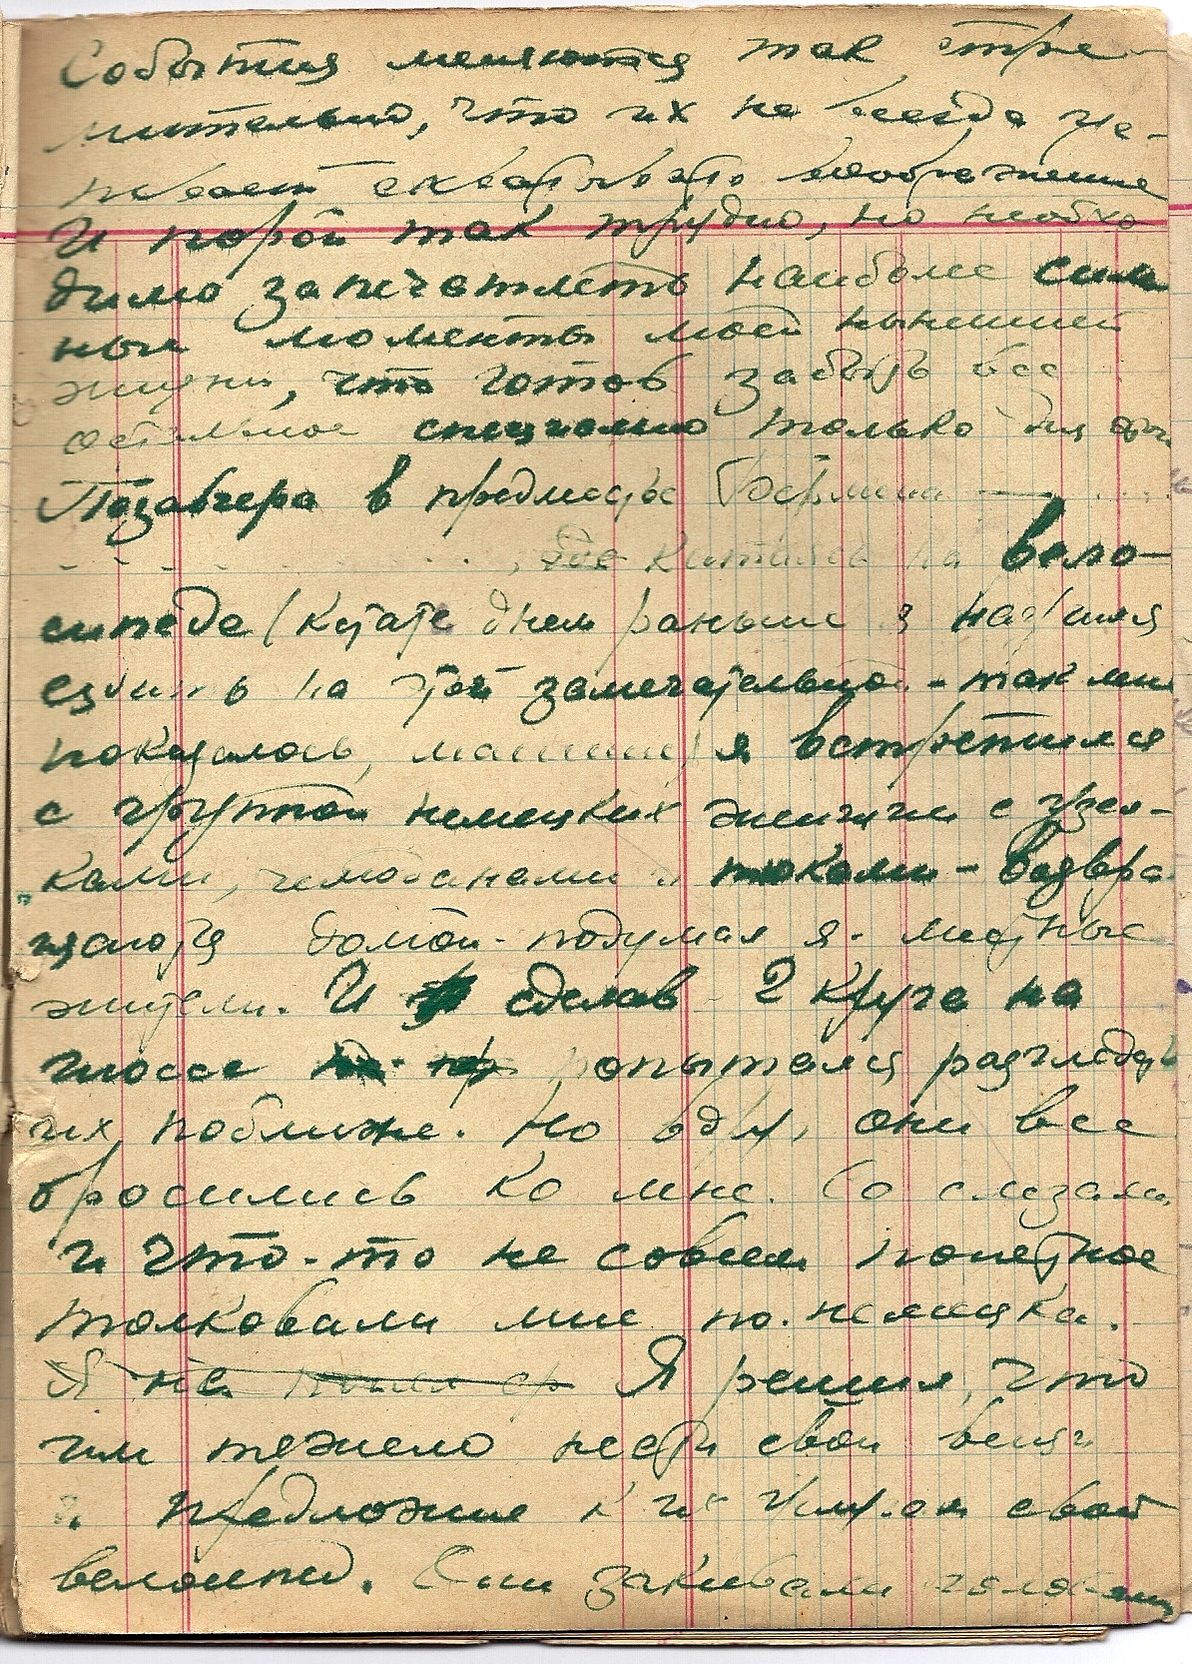 События меняются так стре-
мительно, что их не всегда успе-
вает схватывать воображение
И порой так трудно, но необхо
димо запечатлеть наиболее силь
ные моменты моей нынешней
жизни, что готов забыть все
остальное специально только для
Позавчера в предместье Берлина —
, где катался на вело-
сипеде (кстати днем раньше я научился
ездить на этой замечательной - так мне
показалось, машине) я встретился
с группой немецких женщин с узел-
ками, чемоданами и тюками - возвра
щаются домой - подумал я - местные
жители. И сделав 2 круга на
шоссе попытался разглядеть
их поближе. Но вдруг, они все
бросились ко мне. Со слезами
и что-то не совсем понятное
толковали мне по-немецки.
Я не Я решил, что
им тяжело нести свои вещи
и предложил к их свой
велосипед. Они закивали головами